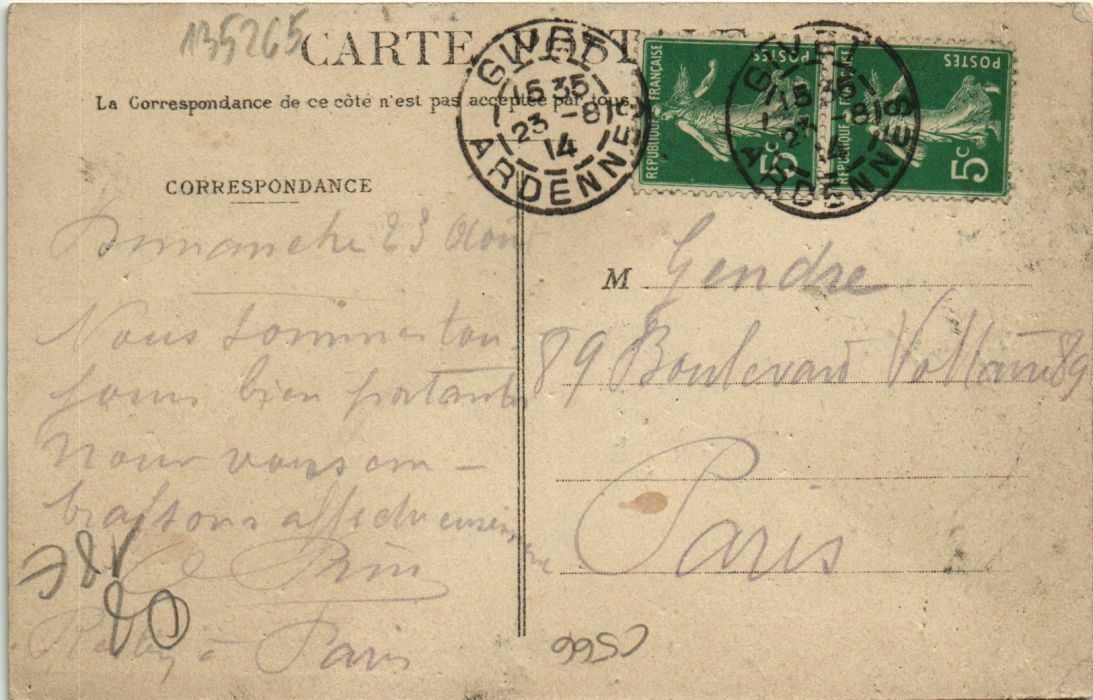 135265
CARTE POSTALE
La Correspondance de ce côté n'est pas acceptée par tous
GIVET
15 35
23 -8
14
ARDENNES
REPUBLIQUE FRANÇAISE
POSTES
5c
GIVET
15 35
23 -8
14
ARDENNES
REPUBLIQUE FRANÇAISE
POSTES
5c
CORRESPONDANCE
Dimanche 23 Aout
Nous sommes tou-
jours bien portants
Nous vous em-
brassons affectueusement
à Paris
M Gendre
89 Boulevard Voltaire 89
Paris
18E
C566